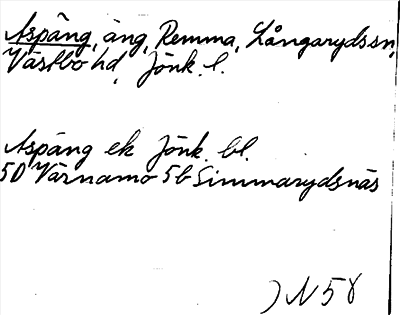 Aspäng, äng, Remma, Långaryds sn,
Västbo hd, Jönk. l.
Aspäng ek Jönk. bl.
5D Värnamo 5b Simmarydsnäs
JN 58